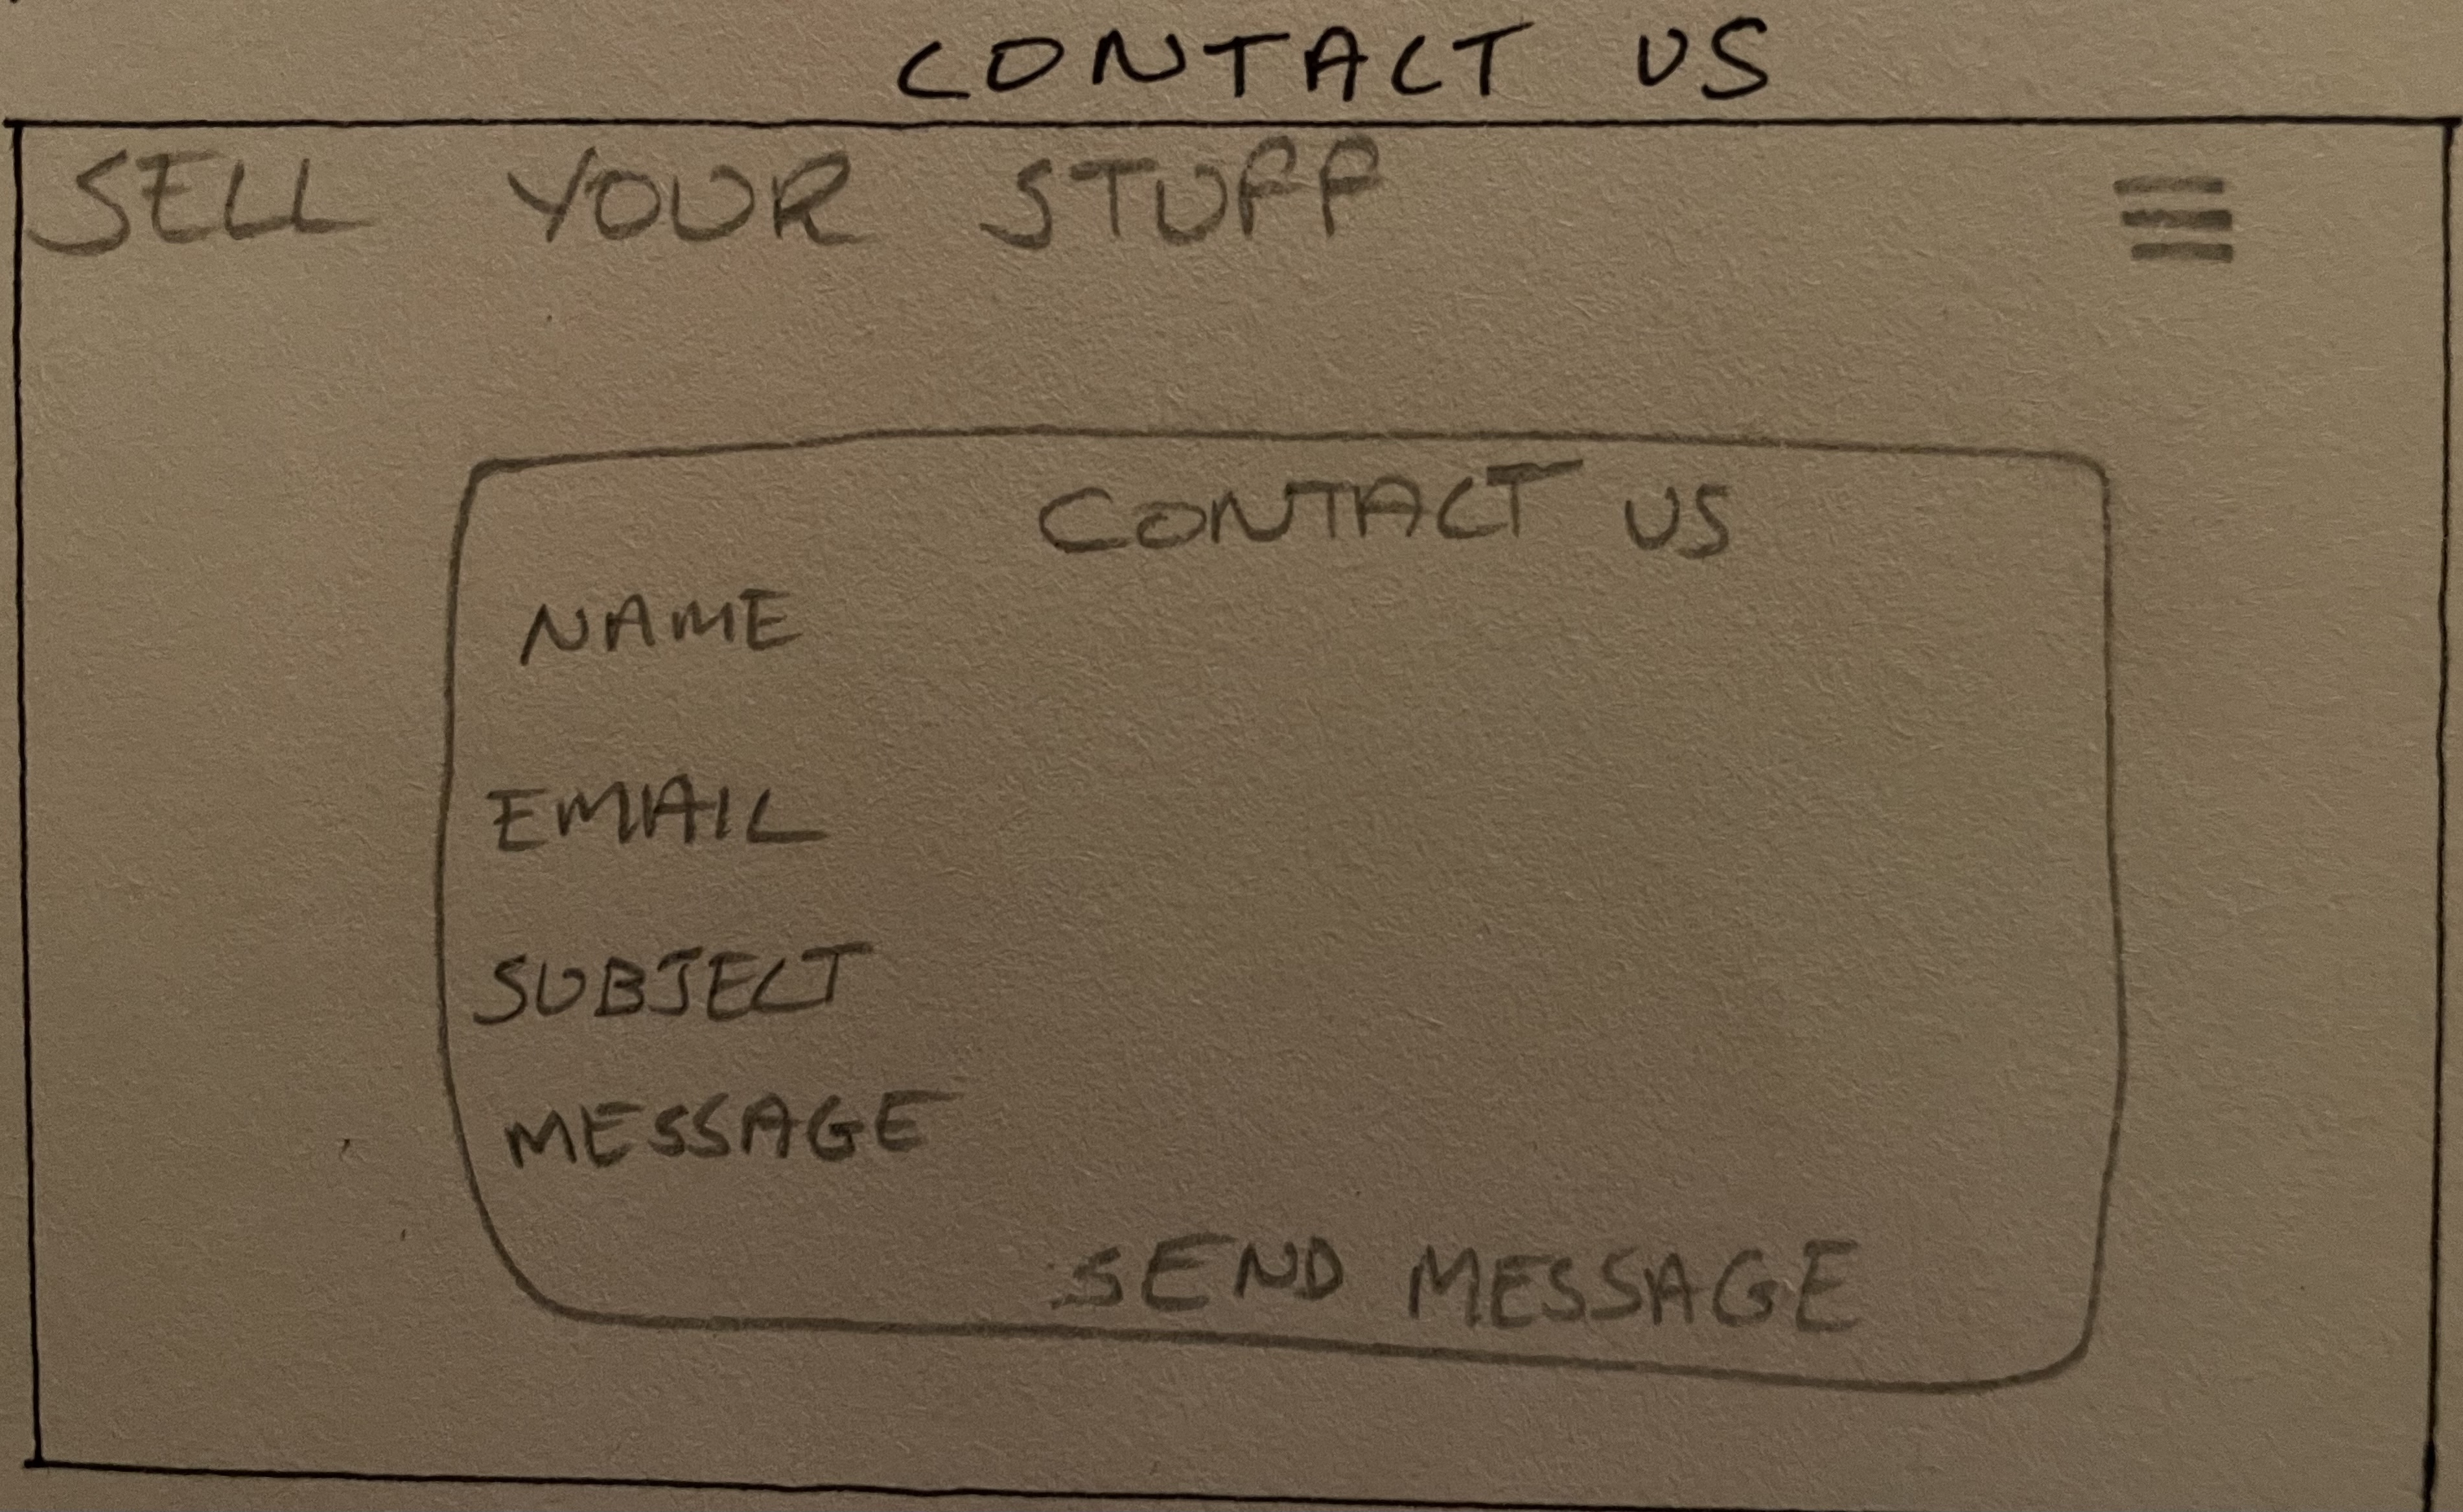 CONTACT US
SELL YOUR STUFF
CONTACT US
NAME
EMAIL
SUBJECT
MESSAGE
SEND MESSAGE